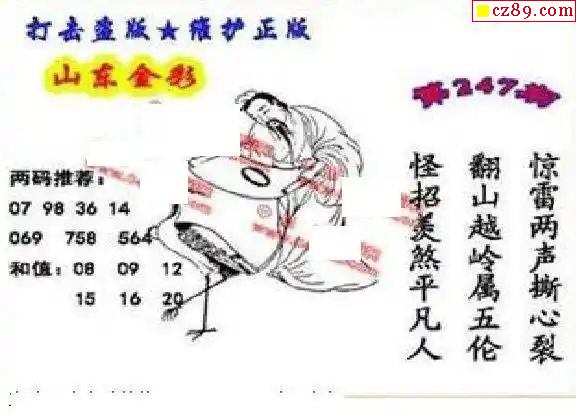 cz89.com
打击盗版★维护正版
山东金彩
第247期
两码推荐：
07 98 36 14
069 758 564
和值：08 09 12
15 16 20
惊雷两声撕心裂
翻山越岭属五伦
怪招羡煞平凡人